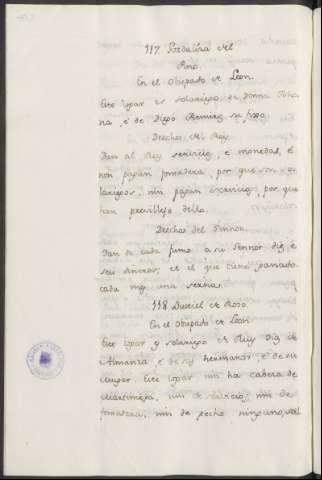 117 Piedalira del
Rino.
En el Obispado de Leon.
Este logar es solariego de Donna Joha
na, é de Diego Ramirez su fijo.
Derechos del Rey.
Dan al Rey servicios, é monedas, é
non pagan fonsadera, por que son so
lariegos, nin pagan escarcios, por que
han previllejo dello.
Derechos del Sennor.
Dan de cada fumo a su Sennor diez é
seis dineros, et el que tiene ganado
cada uno una
118 de Roso.
En el Obispado de Leon
Este logar es solariego de Ruy Diaz de
Almanza, é de sus hermanos, é de su
muger Este logar nin ha cabeza de
Martiniega, nin de servicio, nin de
fonsadera, nin de pecho ninguno,